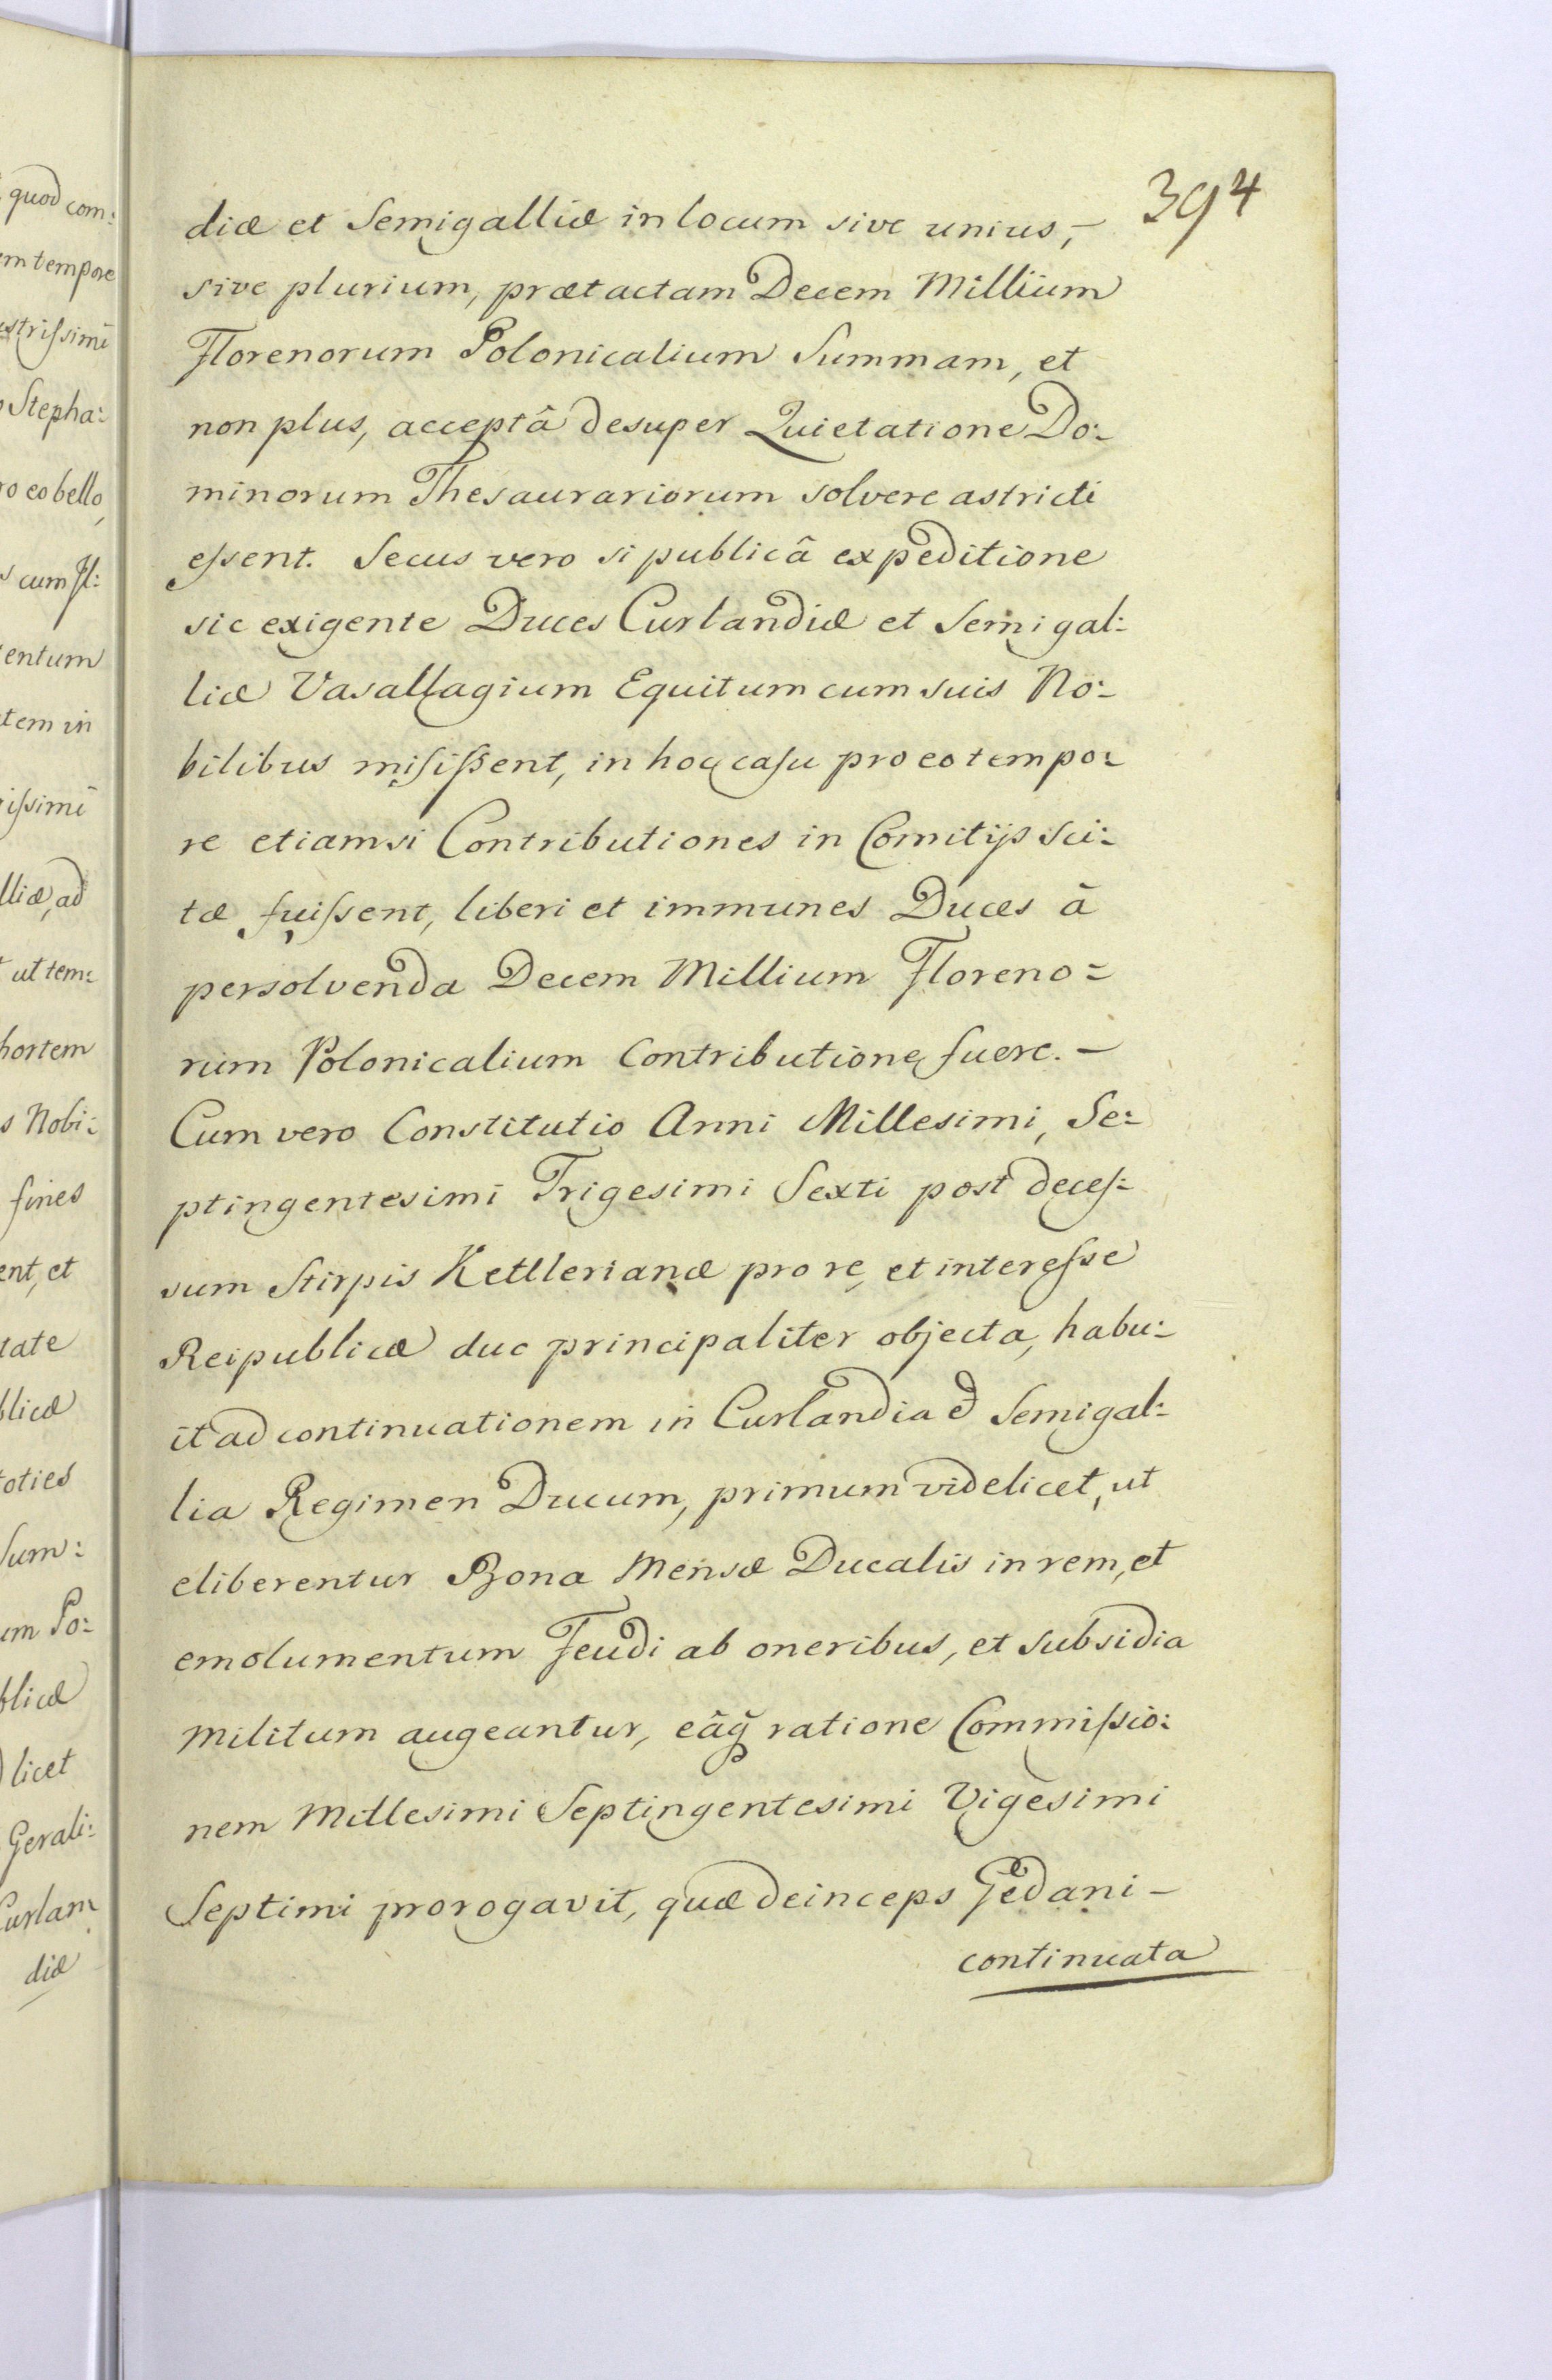 394
diæ et Semigalliæ in locum sive unius, –
sive plurium, prætactam Decem Millium
Florenorum Polonicalium Summam, et
non plus, acceptâ desuper Quietatione Do:
minorum Thesaurariorum solvere astricti
eſsent. Secus vero si publicâ expeditione
sic exigente Duces Curlandiæ et Semigal:
liæ Vasallagium Equitum cum suis No:
bilibus miſiſsent, in hoc caſu pro eo tempo:
re etiamsi Contributiones in Comitijs sci:
tæ fuiſsent, liberi et immunes Duces â
persolvenda Decem Millium Floreno:
rum Polonicalium Contributione fuere. –
Cum vero Constitutio Anni Millesimi, Se:
ptingentesimi Trigesimi Sexti post deceſ:
sum Stirpis Kettlerianæ pro re, et intereſse
Reipublicæ duc principaliter objecta, habu:
it ad continuationem in Curlandia & Semigal:
lia Regimen Ducum, primum videlicet, ut
eliberentur Bona Mensæ Ducalis in rem, et
emolumentum Feudi ab oneribus, et subsidia
Militum augeantur, eâq̃ ratione Commiſsio:
nem Millesimi Septingentesimi Vigesimi
Septimi prorogavit, quæ deinceps Gedani –
continuata
quod com:
em tempore
ustriſsimi
Stepha:
ro eo bello,
s cum Il:
entum
tem in
iſsimi
lliæ, ad
t ut tem:
hortem
s Nobi:
fines
ent, et
tate
blicæ
toties
Sum:
um Po:
blicæ
licet
Gerali:
Curlan
diæ